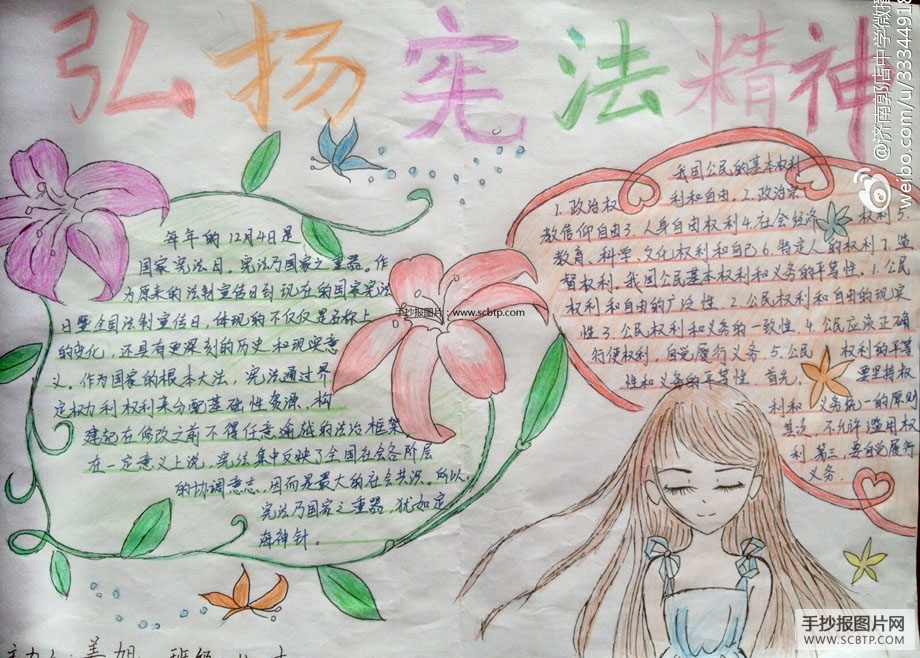 弘扬宪法精神
@济南郭店中学微博
weibo.com/u/33344918
每年的12月4日是
国家宪法日。宪法乃国家之重器。作
为原来的法制宣传日到现在的国家宪法
日暨全国法制宣传日，体现的不仅仅是名称上
的变化，还具有更深刻的历史和现实意
义。作为国家的根本大法，宪法通过界
定权力利权利集分配基础性资源，构
建起在修改之前不得任意逾越的法治框架
在一定意义上说，宪法集中反映了全国社会各阶层
的协调意志，因而是最大的社会共识。所以，
宪法乃国家之重器，犹如定
海神针。
手抄报图片网：www.scbtp.com
我国公民的基本权利
1.政治权利和自由.2.政治
教信仰自由3.人身自由权利4.社会经济权利5.
教育、科学、文化权利和自己6.特定人的权利7.监
督权利。我国公民基本权利和义务的平等性。1.公民
权利和自由的广泛性 2.公民权利和自由的现实
性3.公民权利和义务的一致性.4.公民应该正确
行使权利，自觉履行义务.5.公民权利的平等
性和义务的平等性.首先，要坚持权
利和义务统一的原则
其次.不允许滥用权
利.第三.要自觉履行
义务.
姜旭 班级
手抄报图片网
WWW.SCBTP.COM